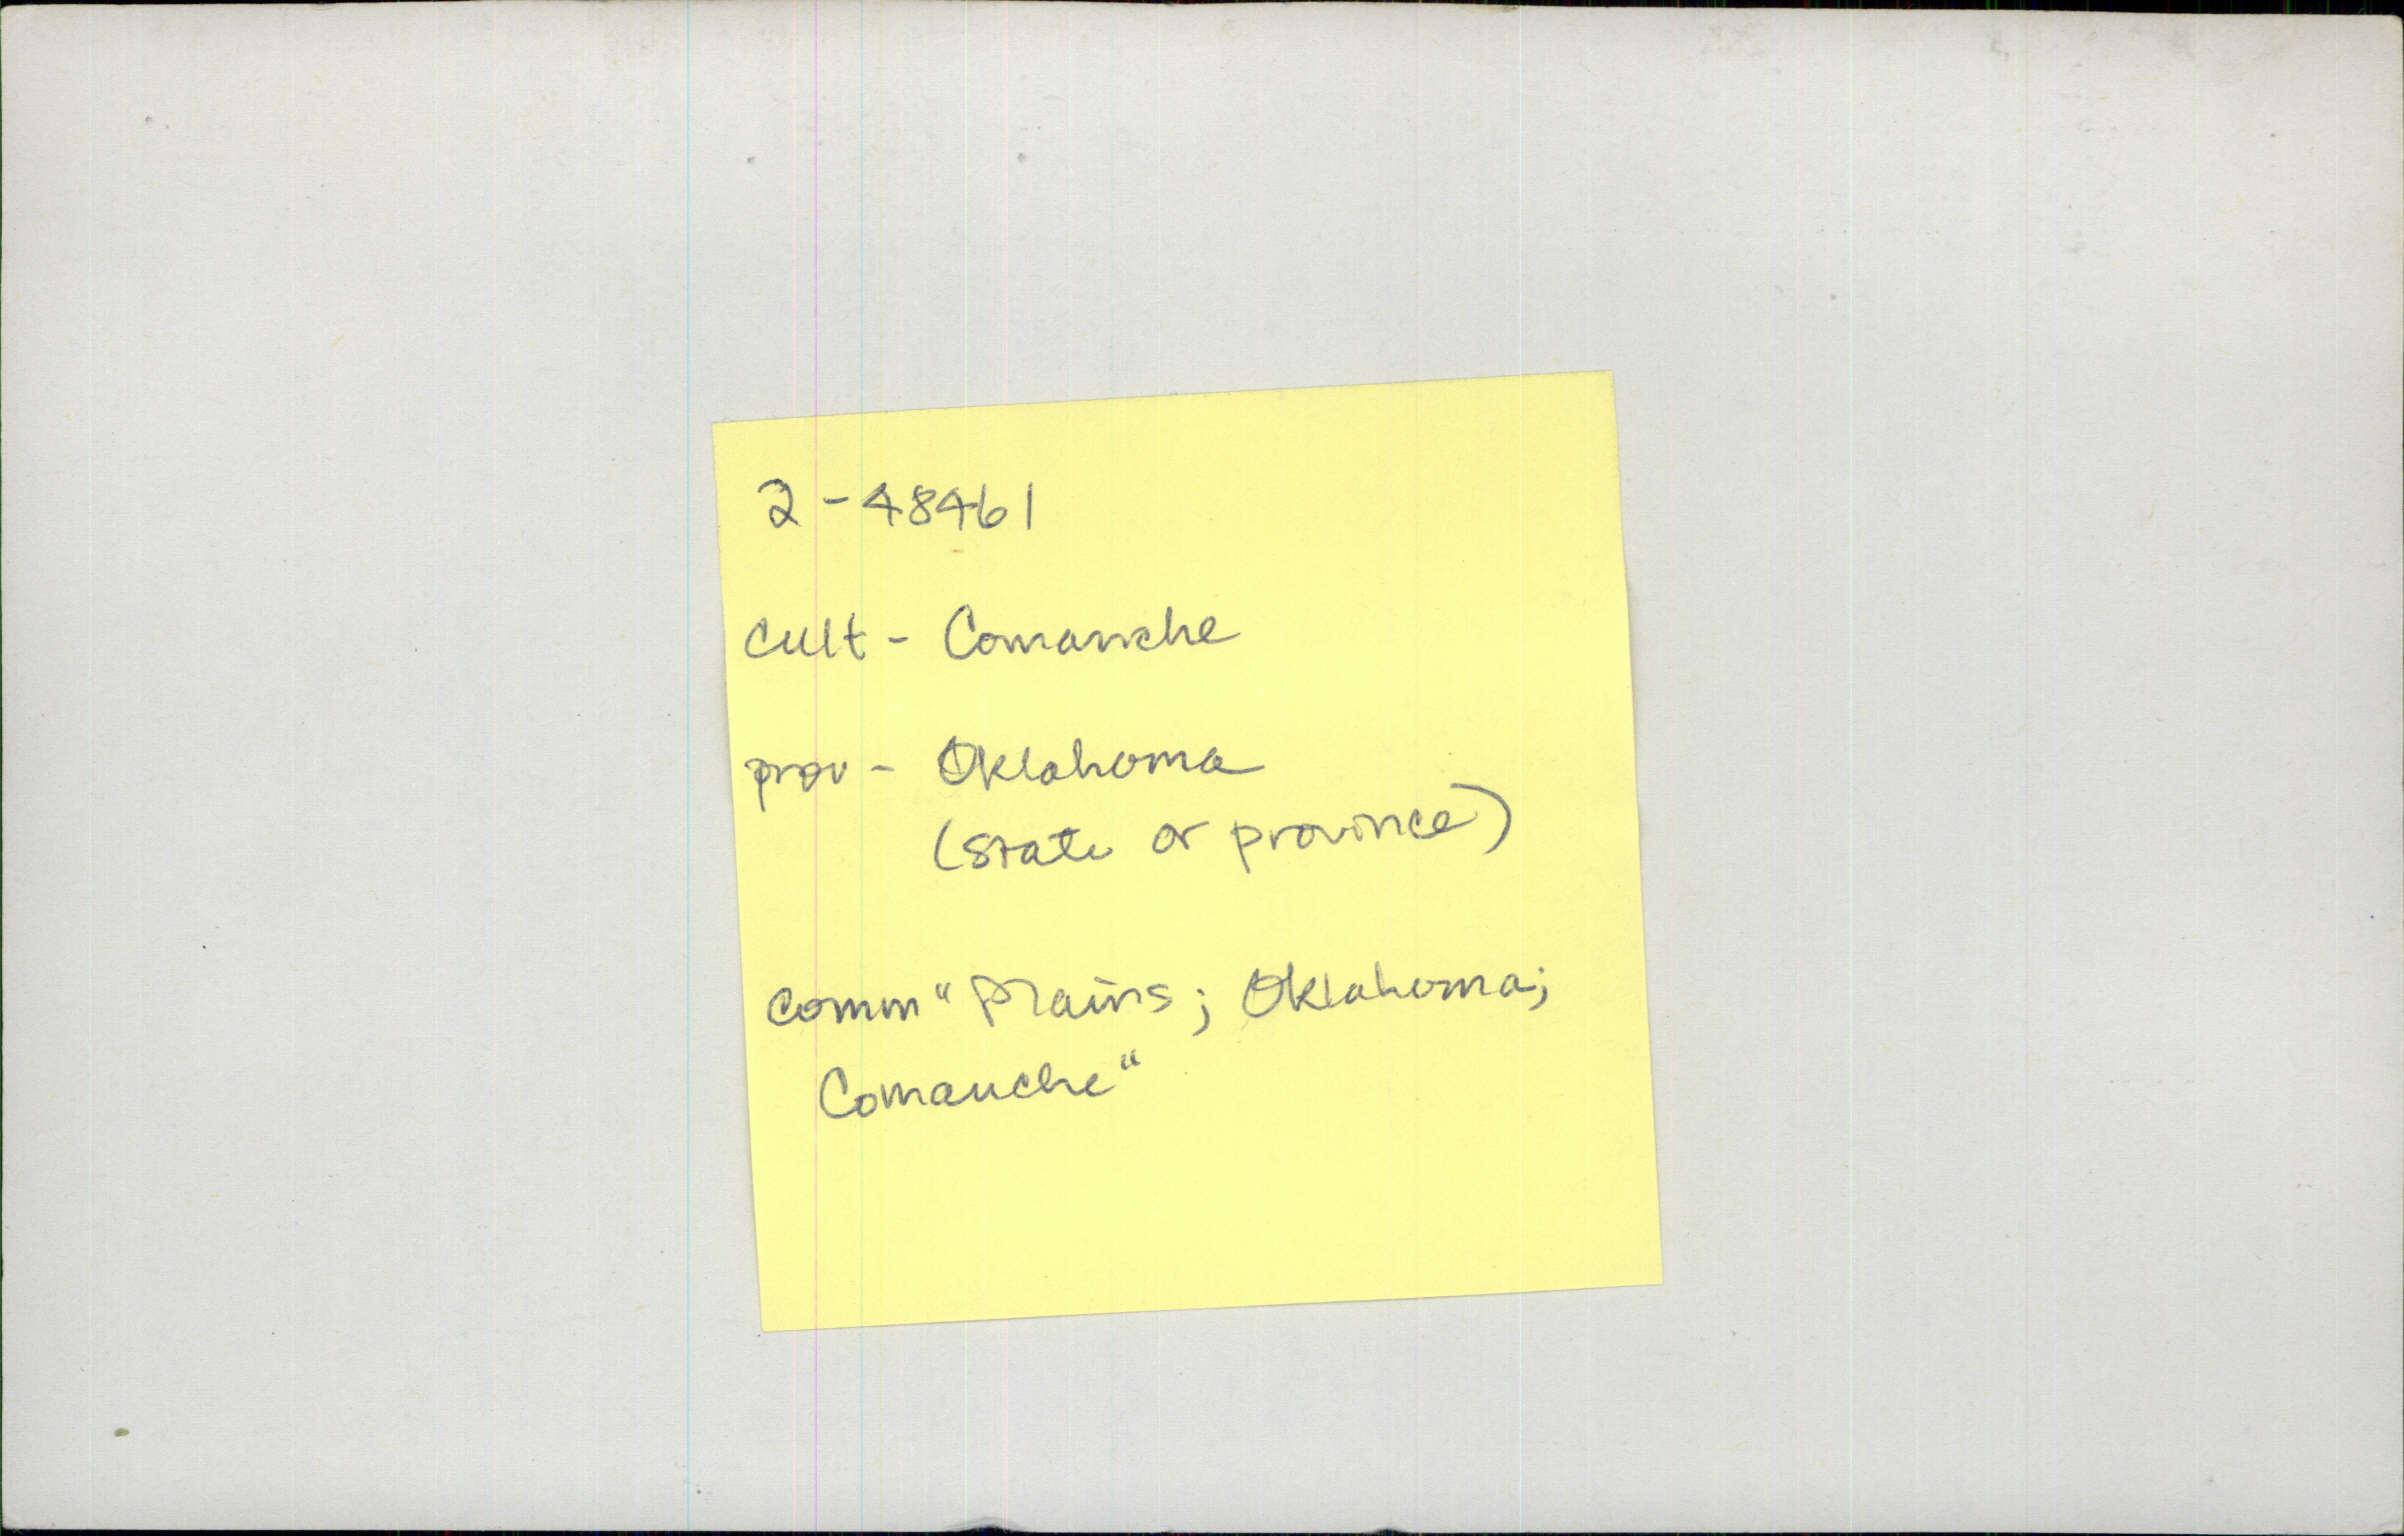 2-48461
cult - Comanche
prov - Oklahoma
(state or province)
comm "Plains; Oklahoma;
Comanche"